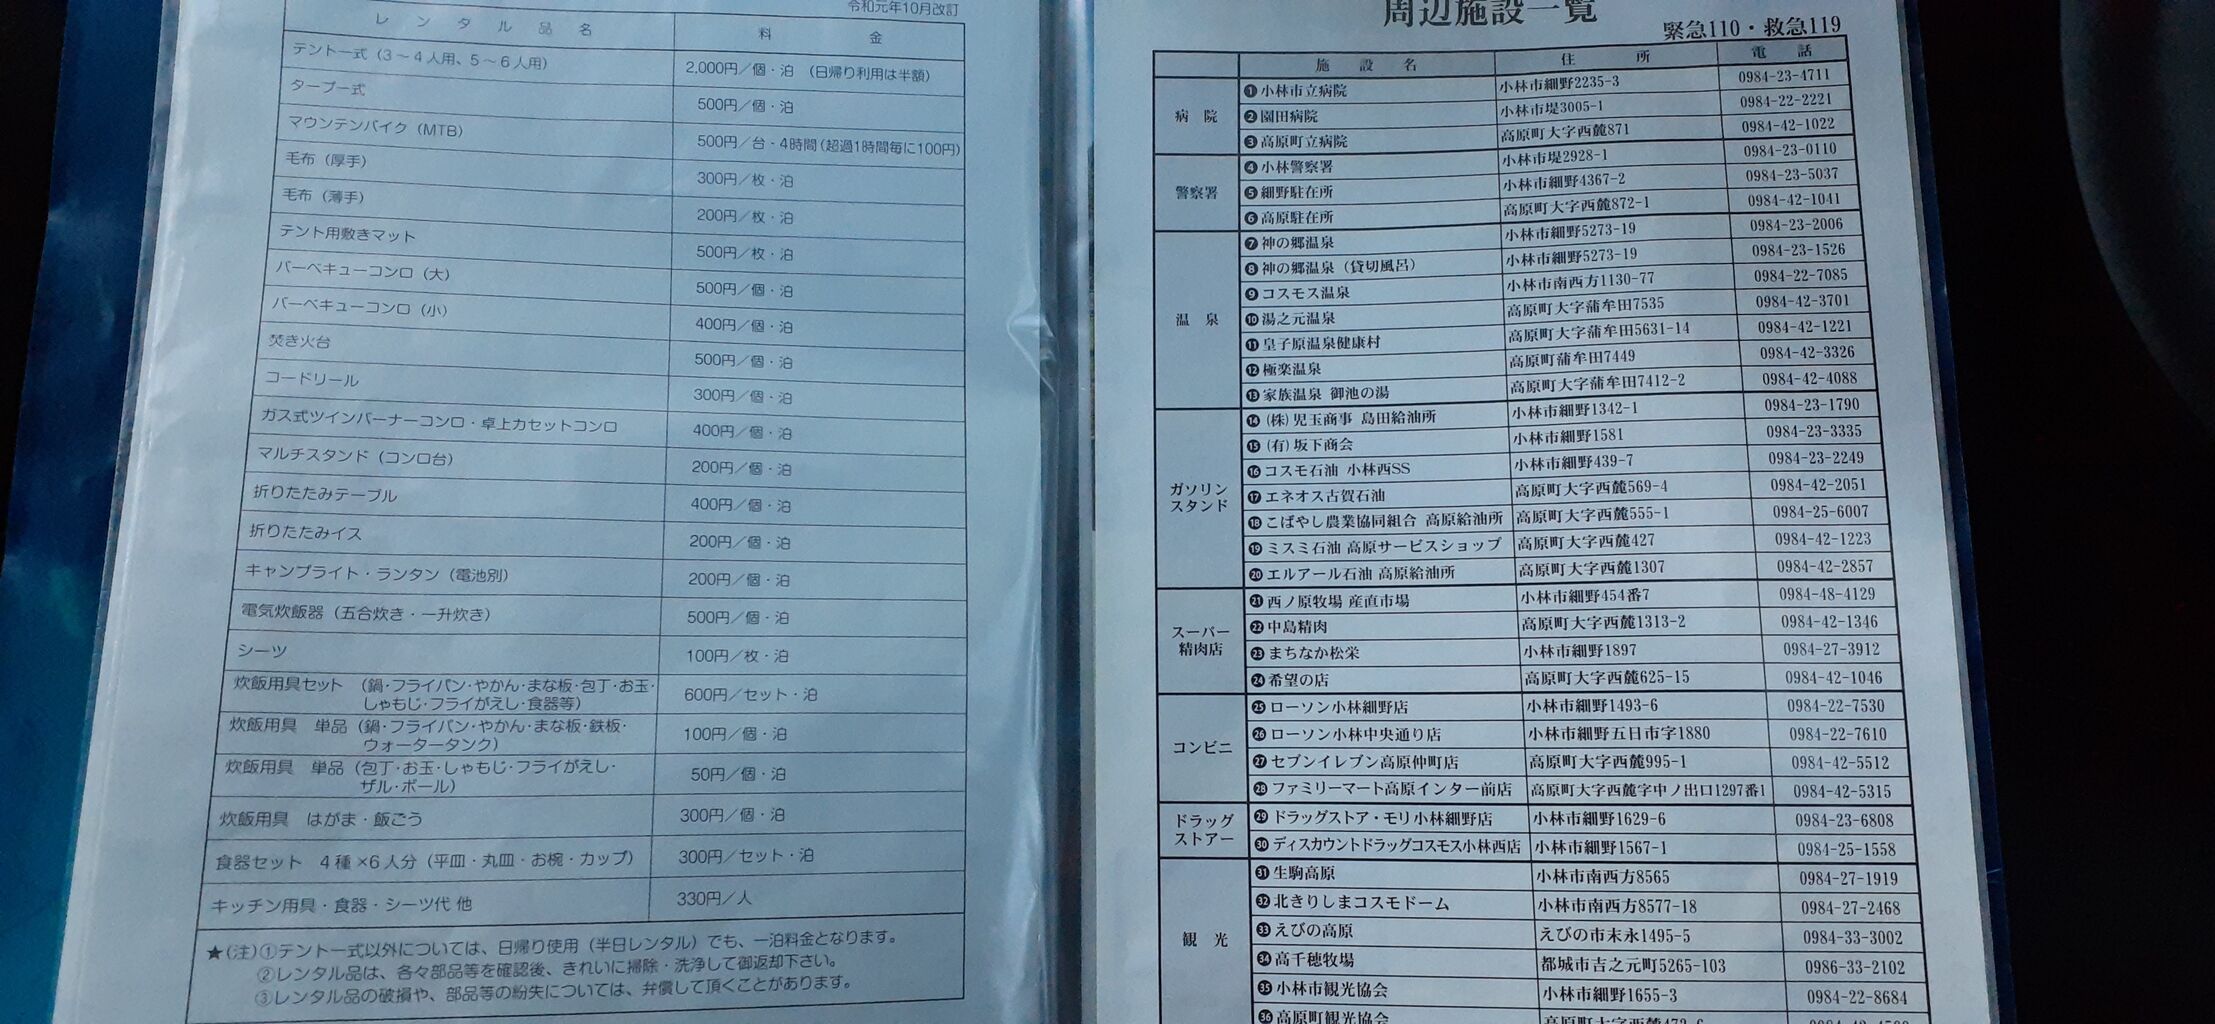 令和元年10月改訂
レンタル品名 料金
テント一式（3～4人用、5～6人用） 2,000円／個・泊 （日帰り利用は半額）
タープ一式 500円／個・泊
マウンテンバイク（MTB） 500円／台・4時間（超過1時間毎に100円）
毛布（厚手） 300円／枚・泊
毛布（薄手） 200円／枚・泊
テント用敷きマット 500円／枚・泊
バーベキューコンロ（大） 500円／個・泊
バーベキューコンロ（小） 400円／個・泊
焚き火台 500円／個・泊
コードリール 300円／個・泊
ガス式ツインバーナーコンロ・卓上カセットコンロ 400円／個・泊
マルチスタンド（コンロ台） 200円／個・泊
折りたたみテーブル 400円／個・泊
折りたたみイス 200円／個・泊
キャンプライト・ランタン（電池別） 200円／個・泊
電気炊飯器（五合炊き・一升炊き） 500円／個・泊
シーツ 100円／枚・泊
炊飯用具セット （鍋・フライパン・やかん・まな板・包丁・お玉・
しゃもじ・フライがえし・食器等） 600円／セット・泊
炊飯用具 単品（鍋・フライパン・やかん・まな板・鉄板・
ウォータータンク） 100円／個・泊
炊飯用具 単品（包丁・お玉・しゃもじ・フライがえし・
ザル・ボール） 50円／個・泊
炊飯用具 はがま・飯ごう 300円／個・泊
食器セット 4種×6人分（平皿・丸皿・お椀・カップ） 300円／セット・泊
キッチン用具・食器・シーツ代 他 330円／人
★（注）①テント一式以外については、日帰り使用（半日レンタル）でも、一泊料金となります。
②レンタル品は、各々部品等を確認後、きれいに掃除・洗浄して御返却下さい。
③レンタル品の破損や、部品等の紛失については、弁償して頂くことがあります。
周辺施設一覧
緊急110・救急119
施設名 住所 電話
病院
❶小林市立病院 小林市細野2235-3 0984-23-4711
❷園田病院 小林市堤3005-1 0984-22-2221
❸高原町立病院 高原町大字西麓871 0984-42-1022
警察署
❹小林警察署 小林市堤2928-1 0984-23-0110
❺細野駐在所 小林市細野4367-2 0984-23-5037
❻高原駐在所 高原町大字西麓872-1 0984-42-1041
温泉
❼神の郷温泉 小林市細野5273-19 0984-23-2006
❽神の郷温泉（貸切風呂） 小林市細野5273-19 0984-23-1526
❾コスモス温泉 小林市南西方1130-77 0984-22-7085
❿湯之元温泉 高原町大字蒲牟田7535 0984-42-3701
⓫皇子原温泉健康村 高原町大字蒲牟田5631-14 0984-42-1221
⓬極楽温泉 高原町蒲牟田7449 0984-42-3326
⓭家族温泉 御池の湯 高原町大字蒲牟田7412-2 0984-42-4088
ガソリン
スタンド
⓮(株)児玉商事 島田給油所 小林市細野1342-1 0984-23-1790
⓯(有)坂下商会 小林市細野1581 0984-23-3335
⓰コスモ石油 小林西SS 小林市細野439-7 0984-23-2249
⓱エネオス古賀石油 高原町大字西麓569-4 0984-42-2051
⓲こばやし農業協同組合 高原給油所 高原町大字西麓555-1 0984-25-6007
⓳ミスミ石油 高原サービスショップ 高原町大字西麓427 0984-42-1223
⓴エルアール石油 高原給油所 高原町大字西麓1307 0984-42-2857
スーパー
精肉店
㉑西ノ原牧場 産直市場 小林市細野454番7 0984-48-4129
㉒中島精肉 高原町大字西麓1313-2 0984-42-1346
㉓まちなか松栄 小林市細野1897 0984-27-3912
㉔希望の店 高原町大字西麓625-15 0984-42-1046
コンビニ
㉕ローソン小林細野店 小林市細野1493-6 0984-22-7530
㉖ローソン小林中央通り店 小林市細野五日市字1880 0984-22-7610
㉗セブンイレブン高原仲町店 高原町大字西麓995-1 0984-42-5512
㉘ファミリーマート高原インター前店 高原町大字西麓字中ノ出口1297番1 0984-42-5315
ドラッグ
ストアー
㉙ドラッグストア・モリ小林細野店 小林市細野1629-6 0984-23-6808
㉚ディスカウントドラッグコスモス小林西店 小林市細野1567-1 0984-25-1558
観光
㉛生駒高原 小林市南西方8565 0984-27-1919
㉜北きりしまコスモドーム 小林市南西方8577-18 0984-27-2468
㉝えびの高原 えびの市末永1495-5 0984-33-3002
㉞高千穂牧場 都城市吉之元町5265-103 0986-33-2102
㉟小林市観光協会 小林市細野1655-3 0984-22-8684
㊱高原町観光協会